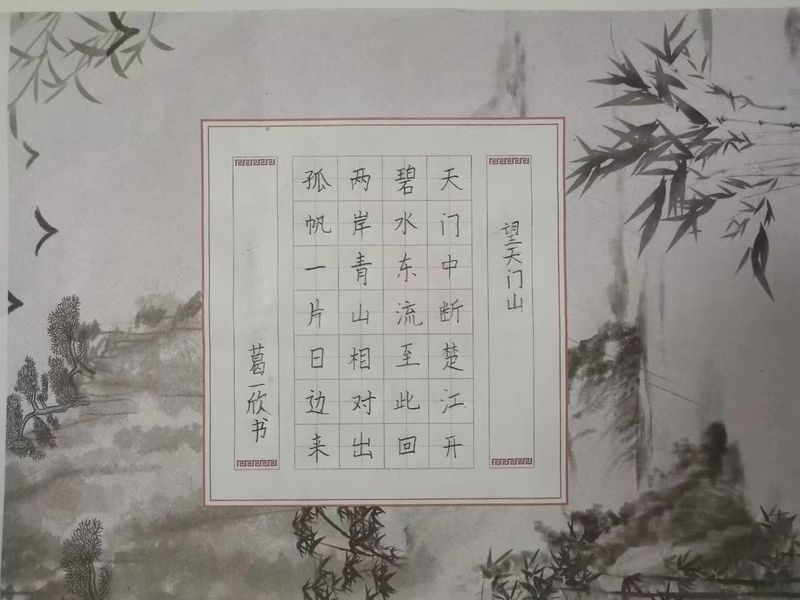 望天门山
天门中断楚江开
碧水东流至此回
两岸青山相对出
孤帆一片日边来
葛一欣书